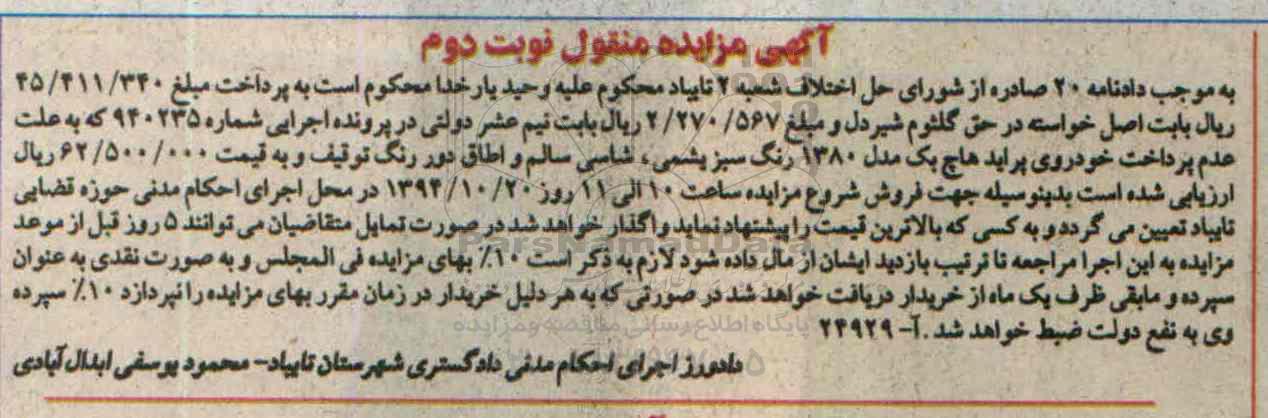 آگهی مزایده منقول نوبت دوم
به موجب دادنامه ۲۰ صادره از شورای حل اختلاف شعبه ۲ تایباد محکوم علیه وحید یارخدا محکوم است به پرداخت مبلغ ۴۵/۴۱۱/۳۴۰
ریال بابت اصل خواسته در حق گلثوم شیردل و مبلغ ۲/۲۷۰/۵۶۷ ریال بابت نیم عشر دولتی در پرونده اجرایی شماره ۹۴۰۲۳۵ که به علت
عدم پرداخت خودروی پراید هاچ بک مدل ۱۳۸۰ رنگ سبز یشمی ، شاسی سالم و اطاق دور رنگ توقیف و به قیمت ۶۲/۵۰۰/۰۰۰ ریال
ارزیابی شده است بدینوسیله جهت فروش شروع مزایده ساعت ۱۰ الی ۱۱ روز ۱۳۹۴/۱۰/۲۰ در محل اجرای احکام مدنی حوزه قضایی
تایباد تعیین می گردد و به کسی که بالاترین قیمت را پیشنهاد نماید واگذار خواهد شد در صورت تمایل متقاضیان می توانند ۵ روز قبل از موعد
مزایده به این اجرا مراجعه تا ترتیب بازدید ایشان از مال داده شود لازم به ذکر است ۱۰٪ بهای مزایده فی المجلس و به صورت نقدی به عنوان
سپرده و مابقی ظرف یک ماه از خریدار دریافت خواهد شد در صورتی که به هر دلیل خریدار در زمان مقرر بهای مزایده را نپردازد ۱۰٪ سپرده
وی به نفع دولت ضبط خواهد شد .آ- ۲۴۹۲۹
دادورز اجرای احکام مدنی دادگستری شهرستان تایباد- محمود یوسفی ابدال آبادی
ParsNamadData
پایگاه اطلاع رسانی مناقصه ومزایده